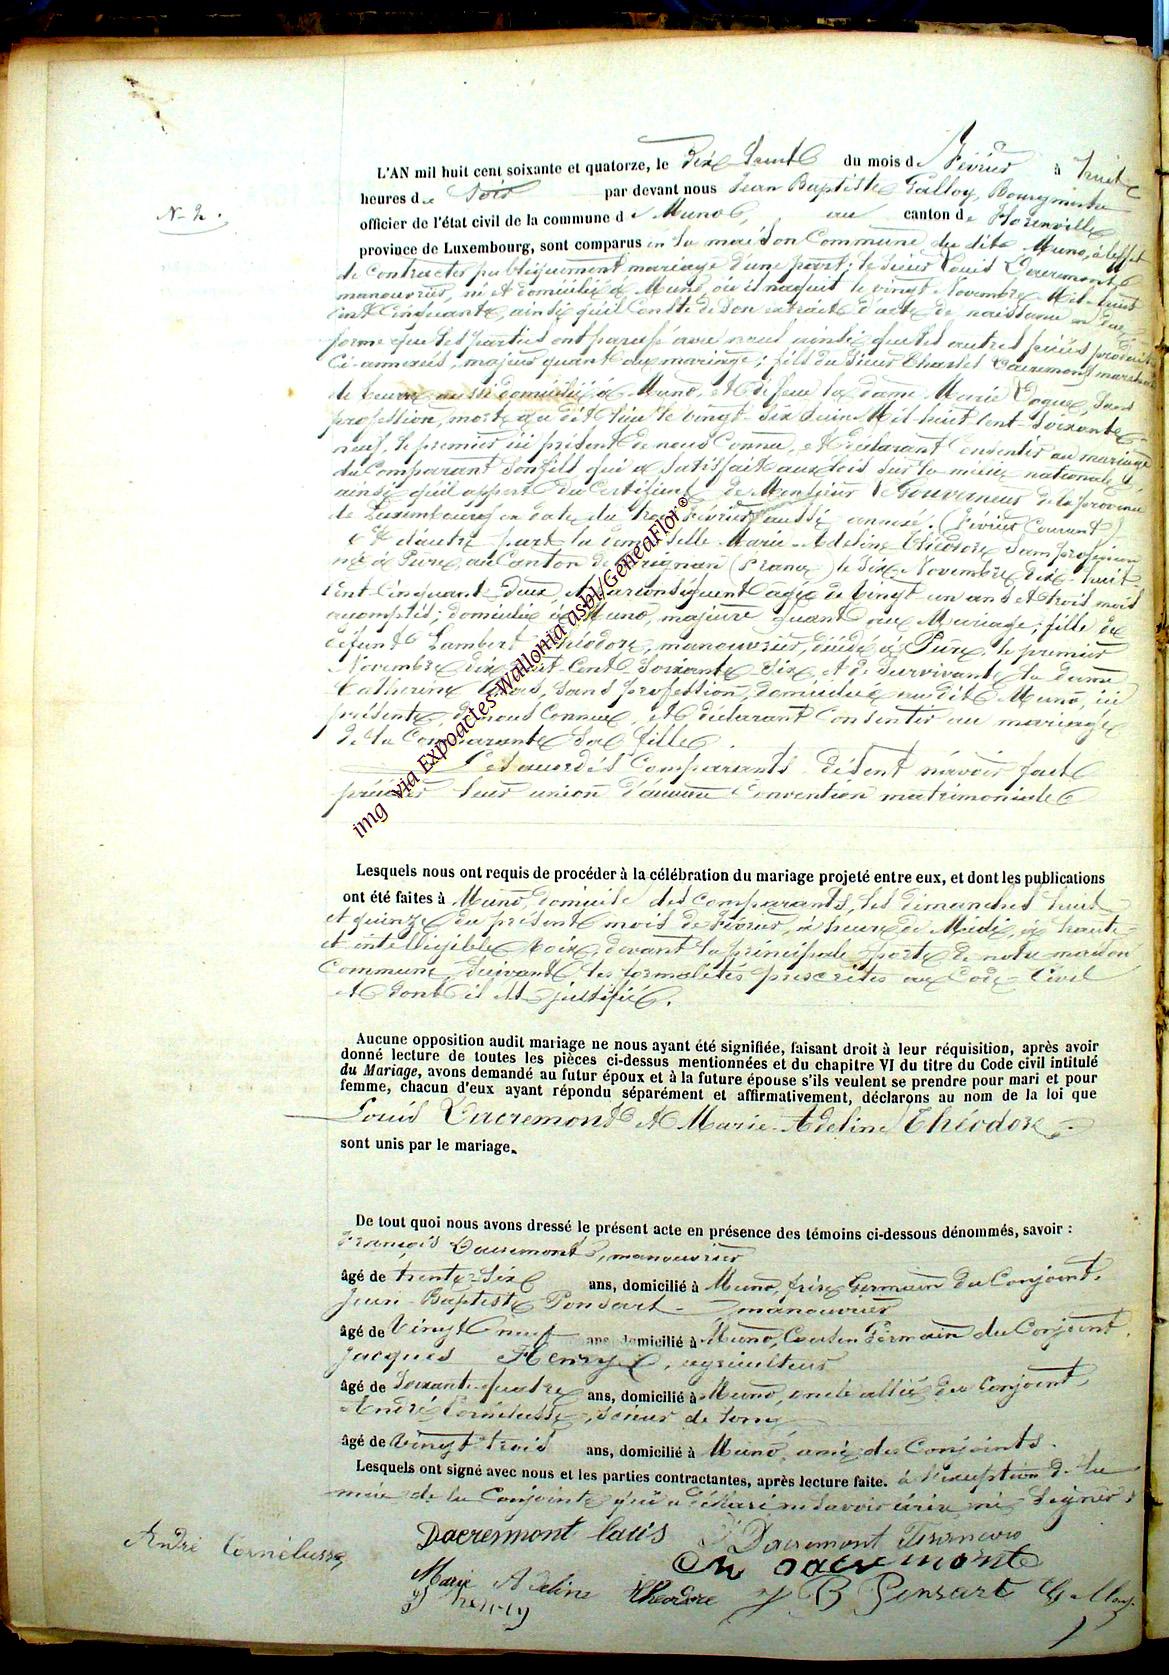 L'AN mil huit cent soixante et quatorze, le dix huit du mois de Février à huit
heures de Soir par devant nous Jean Baptiste Galloy, Bourgmestre
N° 2.
officier de l'état civil de la commune de Muno, au canton de Florenville
province de Luxembourg, sont comparus en la maison Commune du dite Muno, à l'effet
de Contracter publiquement mariage d'une part: le sieur Louis Dacremont
manouvrier, né et domicilié à Muno, où il naquit le vingt Novembre Mil-huit
cent Cinquante, ainsi qu'il Conste de Son extrait d'acte de naissance en due
forme que les parties ont paraphé avec nous ainsi que les autres pièces produites
Ci-annexés, majeur quant au mariage; fils du Sieur Charles Dacremont, marchand
de beurre aussi domicilié à Muno, et de feue la dame Marie Poque, Sans
profession, morte au dit lieu le vingt-Six Juin Mil-huit Cent-Soixante
neuf, le premier ici présent de nous Connu, et déclarant Consentir au mariage
du Comparant Son fils qui a Satisfait aux lois sur la milice nationale
ainsi qu'il appert du Certificat de Monsieur le Gouverneur de la province
de Luxembourg en date du Février aussi annexé. (Février Courant)
Et d'autre part la demoiselle Marie-Adeline Théodore, Sans profession
née à Pure, au Canton de Carignan (France) le Six Novembre dix-huit
Cent Cinquante-deux et par conséquent agée de vingt un ans et trois mois
accomplis; domiciliée à Muno, majeure quant au Mariage; fille de
défunt Lambert Théodore, manouvrier, décédé à Pure, le premier
Novembre dix-huit-Cent Soixante Six et de Survivante la dame
Catherine Sans profession, domiciliée au dit Muno, ici
présente, de nous Connue, et déclarant Consentir au mariage
de la Comparante Sa fille.
Les Susdits Comparants disent n'avoir fait
précéder leur union d'aucune Convention matrimoniale
img via Expoactes-Wallonia asbl/GeneaFlor©
Lesquels nous ont requis de procéder à la célébration du mariage projeté entre eux, et dont les publications
ont été faites à Muno, domicile des comparants, les dimanches huit
et quinze du présent mois de Février, à heure de Midi, à haute
et intelligible voix, devant la principale porte de notre maison
Commune, suivant les formalités prescrites au Code Civil
et dont il est justifié.
Aucune opposition audit mariage ne nous ayant été signifiée, faisant droit à leur réquisition, après avoir
donné lecture de toutes les pièces ci-dessus mentionnées et du chapitre VI du titre du Code civil intitulé
du Mariage, avons demandé au futur époux et à la future épouse s'ils veulent se prendre pour mari et pour
femme, chacun d'eux ayant répondu séparément et affirmativement, déclarons au nom de la loi que
Louis Dacremont et Marie-Adeline Théodore
sont unis par le mariage.
De tout quoi nous avons dressé le présent acte en présence des témoins ci-dessous dénommés, savoir :
François Dacremont, manouvrier
âgé de trente-Six ans, domicilié à Muno, frère Germain du Conjoint.
Jean-Baptiste Ponsart manouvrier
âgé de Vingt neuf ans domicilié à Muno, Cousin Germain du Conjoint.
Jacques Henry, agriculteur
âgé de Soixante-quatre ans, domicilié à Muno, oncle allié du Conjoint,
André Cornélusse, Scieur de long
âgé de Vingt trois ans, domicilié à Muno, ami des Conjoints.
Lesquels ont signé avec nous et les parties contractantes, après lecture faite. à l'exception de la
mère de la Conjointe qui a déclaré ne Savoir écrire ni Signer
André Cornélusse
Dacremont Dacremont François
Ch Dacremont
Marie Adeline Théodore J B Ponsart Galloy
J henry